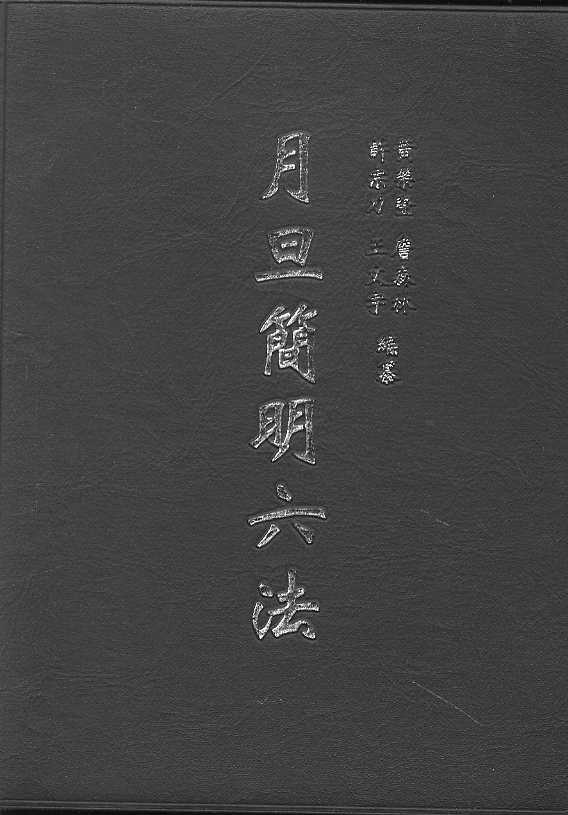 黃榮堅 詹森林
許宗力 王文宇 編纂
月旦簡明六法